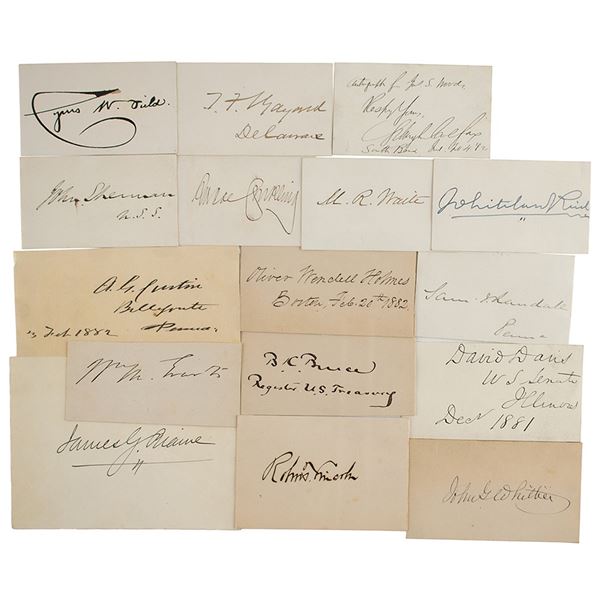 Cyrus W. Field.
T. F. Bayard
Delaware
Autograph for
Respy Yours,
Schuyler Colfax
South Bend Ind.
John Sherman
U.S.S.
Roscoe Conkling
M. R. Waite
Whitelaw Reid
A. G. Curtin
Bellefonte
Feb 1882 Penna.
Oliver Wendell Holmes
Boston, Feb. 20th 1882.
Sam J Randall
Penna
Wm M. Evarts
B. K. Bruce
Register U.S. Treasury
David Davis
U S Senate
Illinois
Dec 1881
James G. Blaine
Robt. T. Lincoln
John G. Whittier